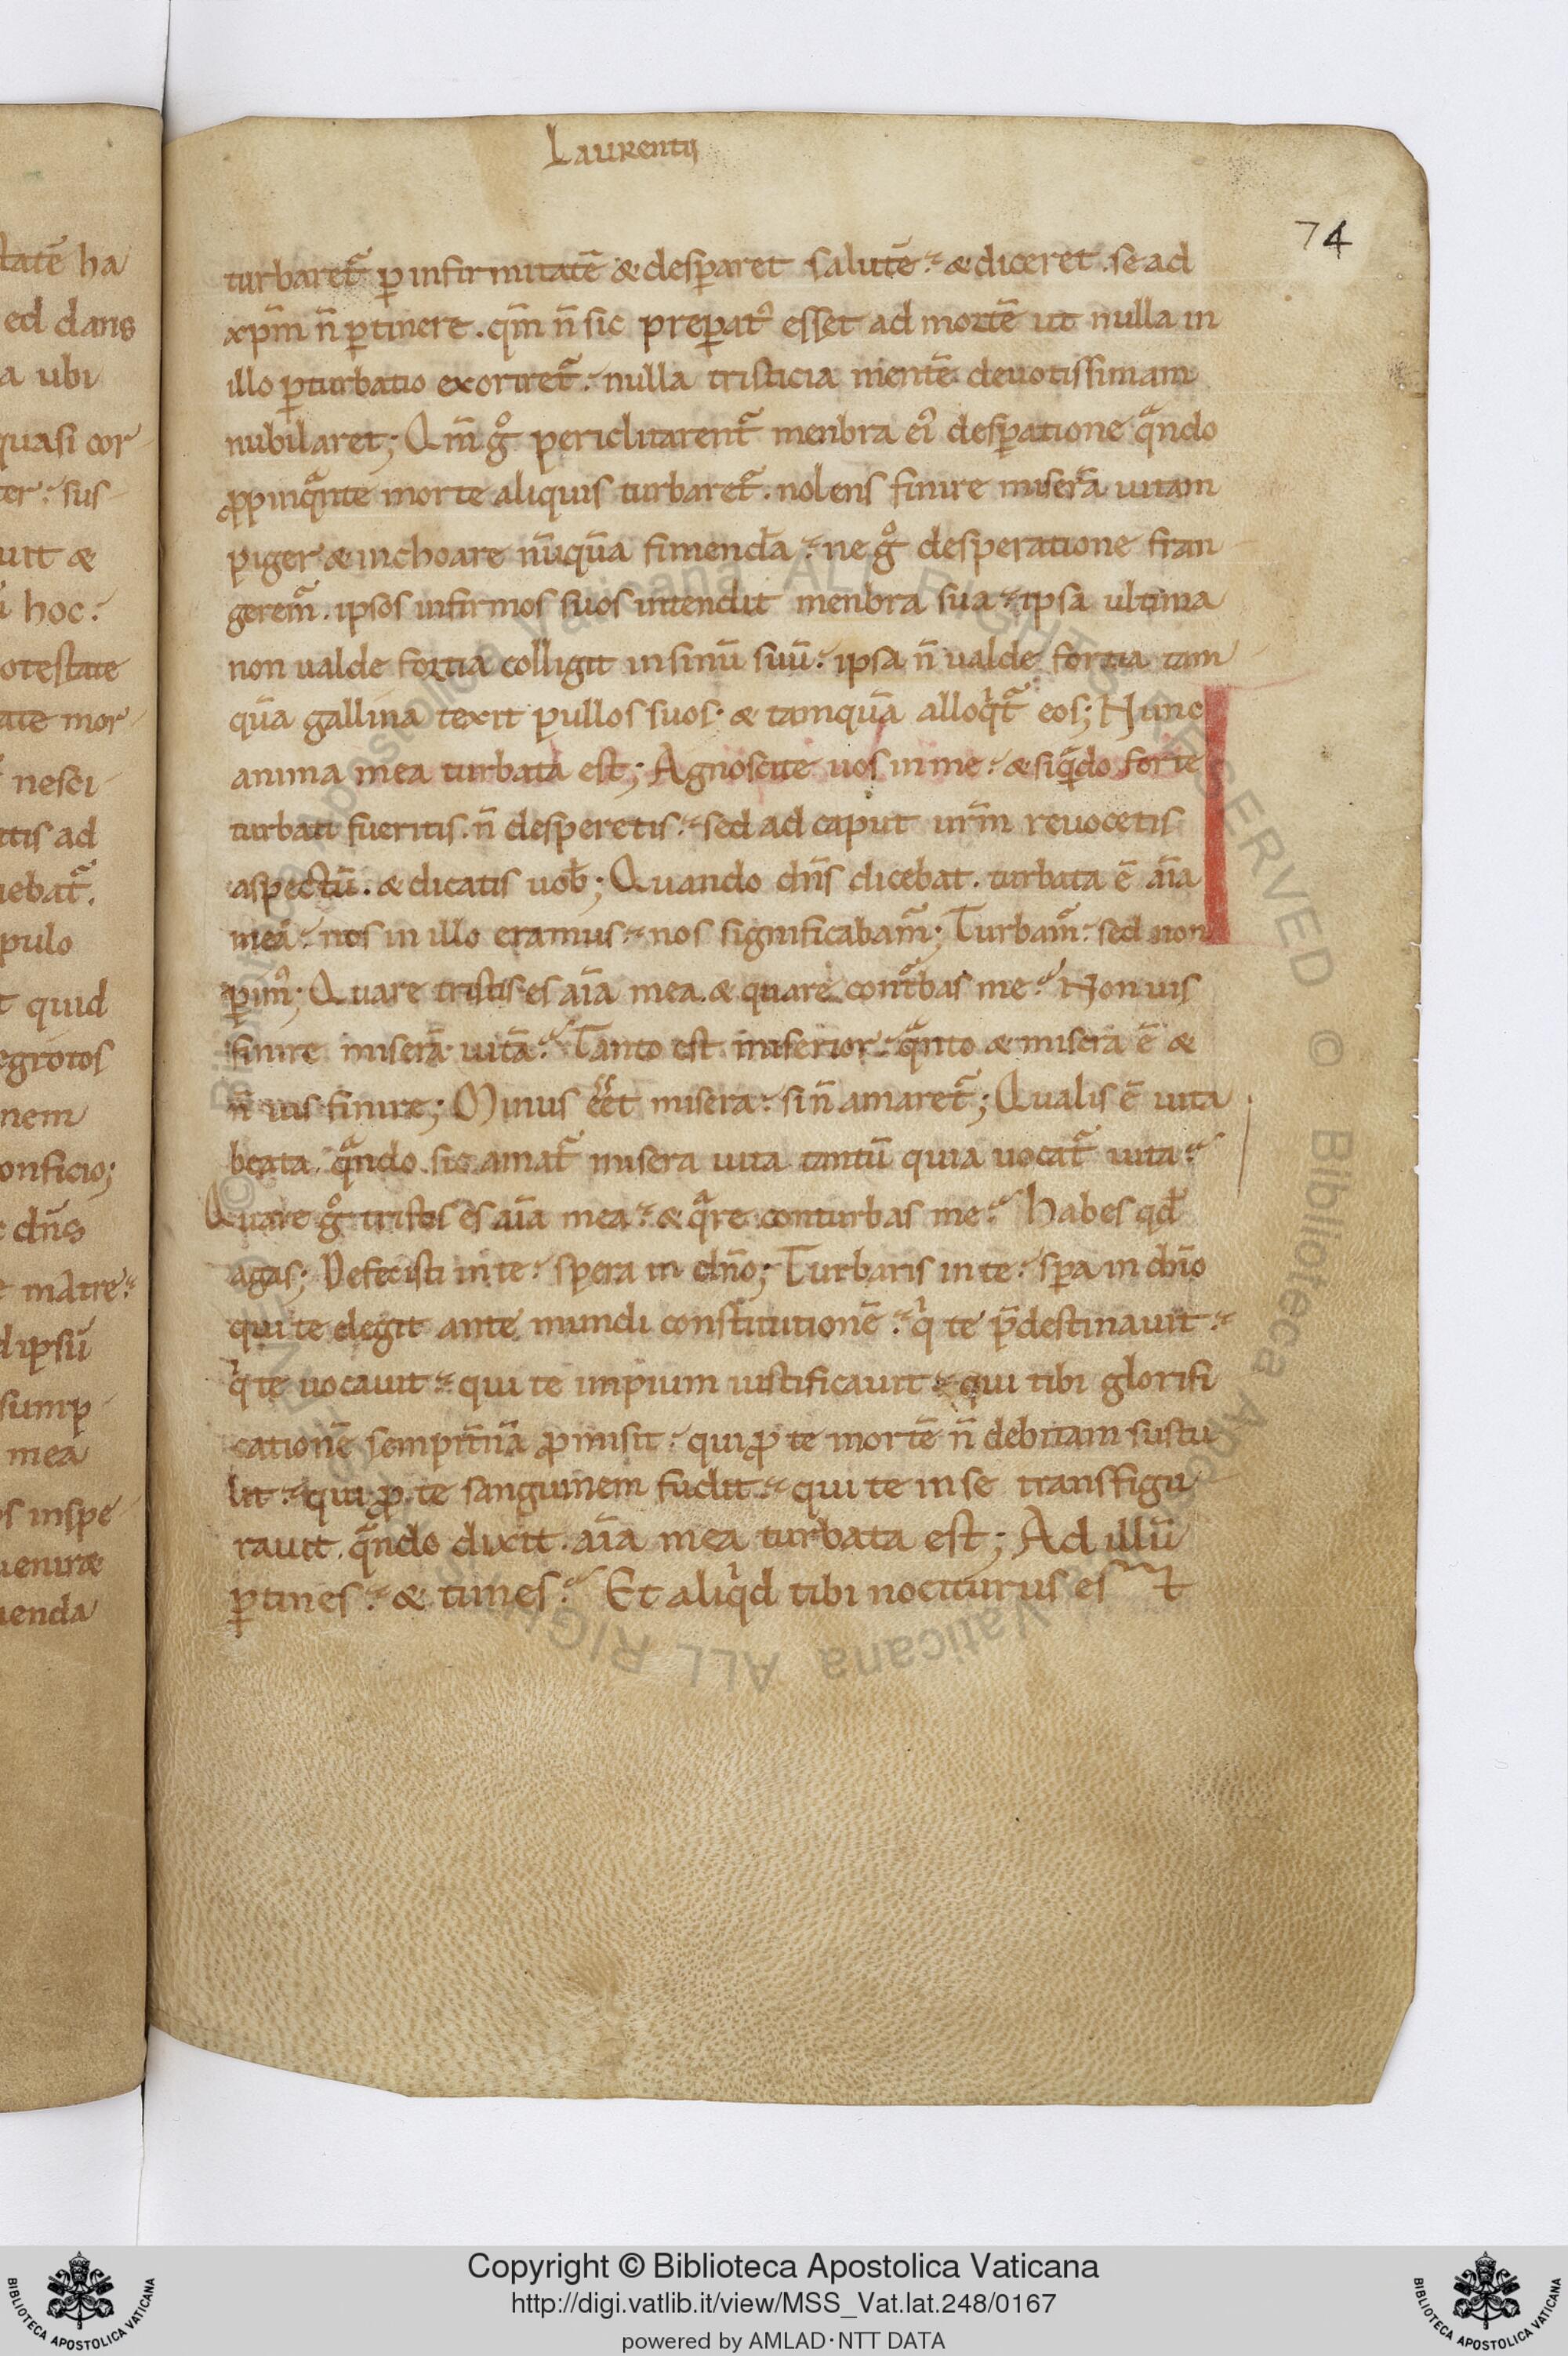 Laurentij
74
turbaret᷑ ꝑ infirmitatē & desꝑaret salutē. & diceret. se ad
xp̄m n̄ ꝑtinere. qm̄ n̄ sic preꝑatꝰ esset ad mortē ut nulla in
illo ꝑturbatio exoriret᷑. nulla tristicia mentē deuotissimam
nubilaret; Qm̄ gͦ periclitarent᷑ menbra eiꝰ desꝑatione qᷓndo
ꝓpinqᷓnte morte aliquis turbaret᷑. nolens finire miserā uitam
piger & inchoare nūquā finiendā. ne gͦ desperatione fran
gerem᷑. ipsos infirmos suos intendit menbra sua. ipsa ultima
non ualde fortia colligit in sinū suū. ipsa n̄ ualde fortia tam
quā gallina texit pullos suos. & tamquā alloqͥt᷑ eos; Nunc
anima mea turbata est; Agnoscite uos in me. & siqᷓdo forte
turbati fueritis. n̄ desperetis. sed ad caput ur̄m reuocetis
aspectū. & dicatis uob̄; Quando dn̄s dicebat. turbata ē aīa
mea. nos in illo eramus. nos significabam᷑; Turbam᷑. sed non
ꝑimꝰ; Quare tristis es aīa mea. & quare cont᷑bas me? Non uis
finire miserā uitā? Tanto est miserior. qᷓnto & misera ē &
n̄ uis finire; Minus eēt misera. si n̄ amaret᷑; Qualis ē uita
beata. qᷓndo sic amat᷑ misera uita tantū quia uocat᷑ uita?
Quare gͦ tristis es aīa mea. & qᷓre conturbas me? Habes qd̄
agas; Defecisti in te. spera in dn̄o; Turbaris in te. sꝑa in dn̄o
qui te elegit ante mundi constitutionē. qͥ te p̄destinauit.
qͥ te uocauit. qui te impium iustificauit. qui tibi glorifi
cationē sempit̄nā ꝓmisit. qui ꝓ te mortē n̄ debitam sustu
lit. qui ꝓ te sanguinem fudit. qui te in se transfigu
rauit. qᷓndo dixit. aīa mea turbata est; Ad illū
ꝑtines. & times? Et aliqͥd tibi nociturus est
tatē ha
ed dans
a ubi
quasi cor
ter. sus
uit &
hoc.
otestate
mor
nesci
itis ad
iebat᷑.
pulo
t quid
egrotos
nem
onficio;
dn̄s
matre.
dipsū
sump
mea
s inspe
uenire
ienda
© Biblioteca Apostolica Vaticana ALL RIGHTS RESERVED © Biblioteca Apostolica Vaticana ALL RIGHTS RESERVED
Copyright © Biblioteca Apostolica Vaticana
http://digi.vatlib.it/view/MSS_Vat.lat.248/0167
powered by AMLAD·NTT DATA
BIBLIOTECA APOSTOLICA VATICANA
BIBLIOTECA APOSTOLICA VATICANA